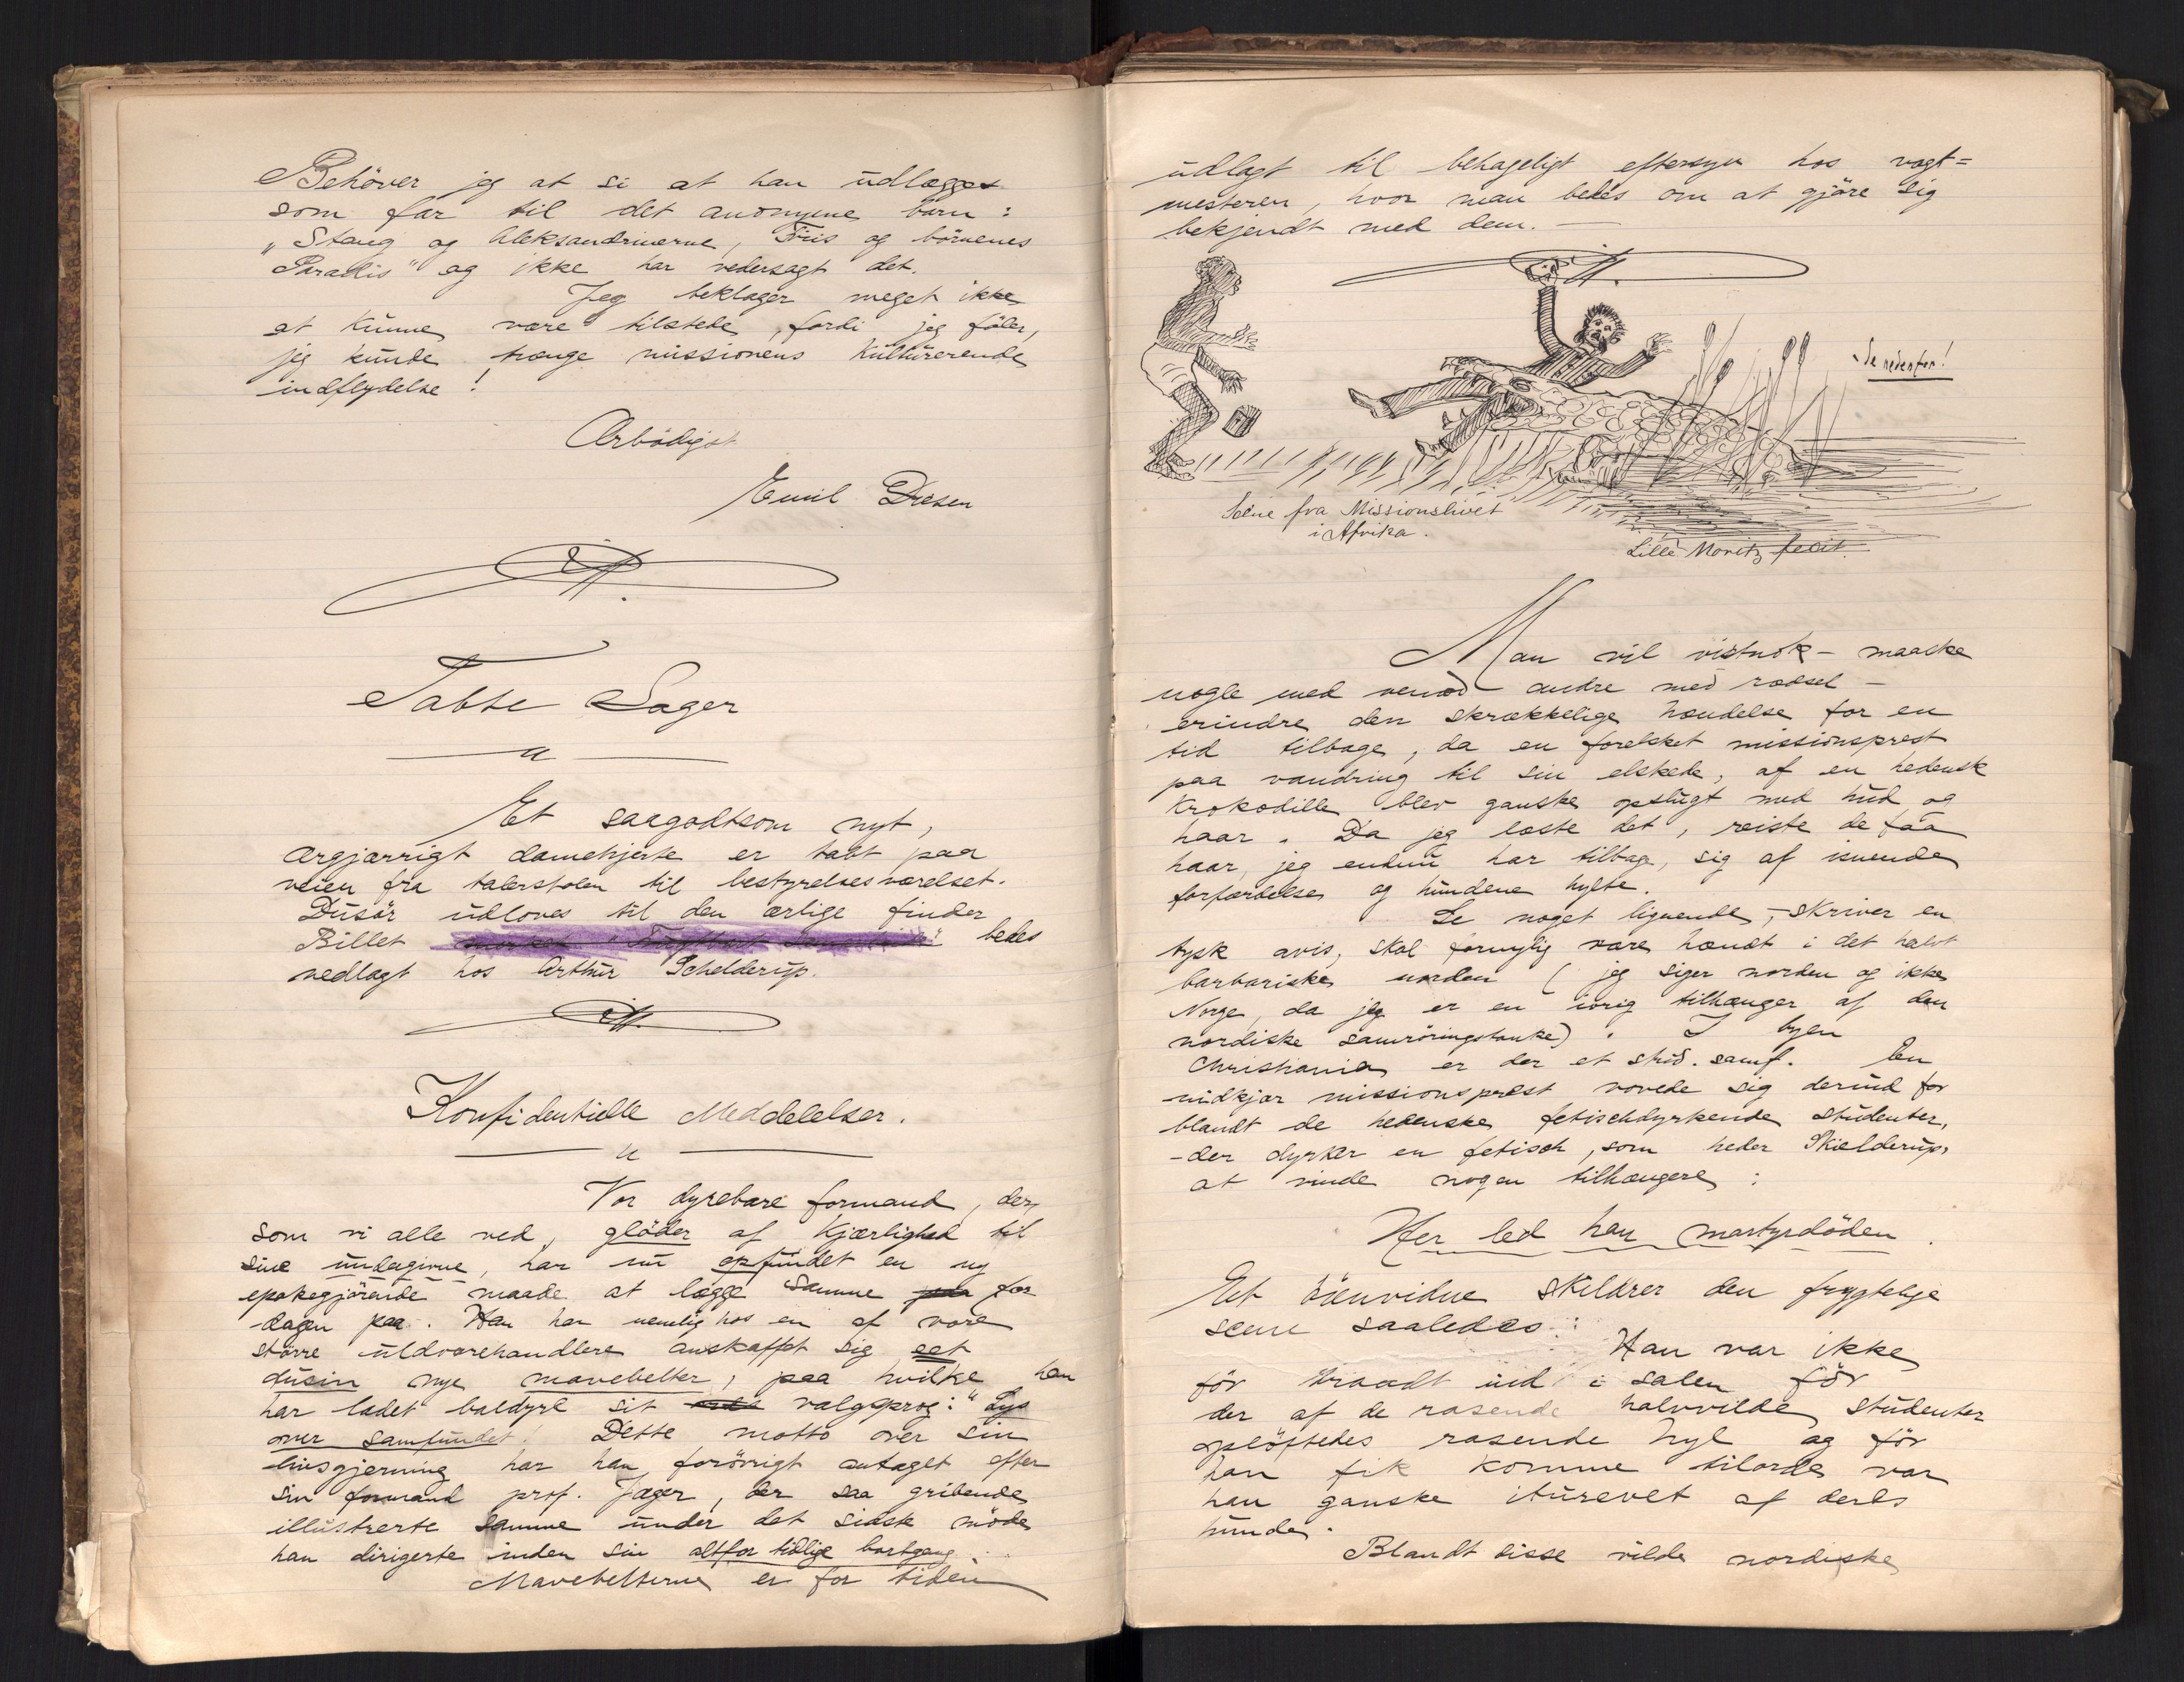 Behöver jeg at si at han udlægges
som far til det anonyme barn:
"Stang og Aleksandrinerne, Friis og börnenes
Paradis" og ikke har vedersagt det.
Jeg beklager meget ikke
at kunne være tilstede, fordi jeg föler,
jeg kunde trænge missionens kulturerende
indflydelse!
Ærbödigst
Emil Diesen
Tabte Sager
Et saagodtsom nyt,
ærgjærrigt damehjerte er tabt paa
veien fra talerstolen til bestyrelsesværelset.
Dusör udloves til den ærlige finder
Billet mærket bedes
nedlagt hos Arthur Schelderup.
Konfidentielle Meddelelser.
Vor dyrebare formand, der,
som vi alle ved, glöder af kjærlighed til
sine undergivne, har nu opfundet en ny
epokegjörende maade at lægge samme paa for
dagen paa. Han har nemlig hos en af vore
större uldvarehandlere anskaffet sig eet
dusin nye mavebelter, paa hvilke han
har ladet baldyre sit valgprog: "Lys
over samfundet! Dette motto over sin
livsgjerning har han forövrigt antaget efter
sin formand prof. Jæger, der saa gribende
illustrerte samme under det sidste möde
han dirigerte inden sin altfor tidlige bortgang.
Mavebelterne er for tiden
udlagt til behageligt eftersyn hos vagt=
mesteren, hvor man bedes om at gjöre sig
bekjendt med dem. —
Se nedenfor!
Scene fra Missionslivet
i Afrika.
Lille Moritz fecit.
Man vil vistnok – maaske
nogle med vemod – andre med rædsel –
erindre den skrækkelige hændelse for en
tid tilbage, da en forelsket missionsprest
paa vandring til sin elskede, af en hedensk
krokodille blev ganske opslugt med hud og
haar. Da jeg læste det, reiste de faa
haar, jeg endnu har tilbage, sig af isnende
forfærdelse og hundene hylte.
Se noget lignende, – skriver en
tysk avis, skal fornylig være hændt i det halvt
barbariske norden (jeg siger norden og ikke
Norge, da jeg er en ivrig tilhænger af den
nordiske samröringstanke). I byen
Christiania er der et stud. samf. En
nidkjær missionsprest vovede sig derind for
blandt de hedenske fetischdyrkende studenter,
– der dyrker en fetisch, som heder Skielderup,
at vinde nogen tilhængere:
Her led han martyrdöden.
Et öienvidne skildrer den frygtelige
scene saaledes:
Han var ikke
för traadt ind i salen för
der af de rasende halvvilde studenter
oplöftedes rasende hyl og för
han fik komme tilorde var
han ganske iturevet af deres
hunde.
Blandt disse vilde nordiske